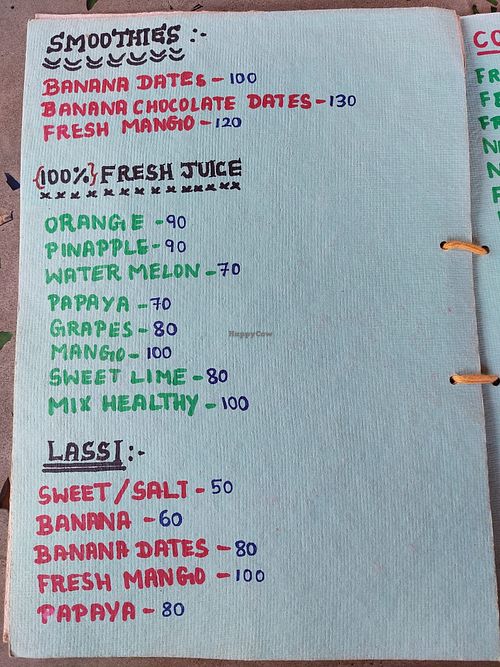 SMOOTHIES :-
BANANA DATES - 100
BANANA CHOCOLATE DATES - 130
FRESH MANGO - 120
{100%} FRESH JUICE
ORANGE - 90
PINAPPLE - 90
WATER MELON - 70
PAPAYA - 70
GRAPES - 80
HappyCow
MANGO - 100
SWEET LIME - 80
MIX HEALTHY - 100
LASSI :-
SWEET / SALT - 50
BANANA - 60
BANANA DATES - 80
FRESH MANGO - 100
PAPAYA - 80